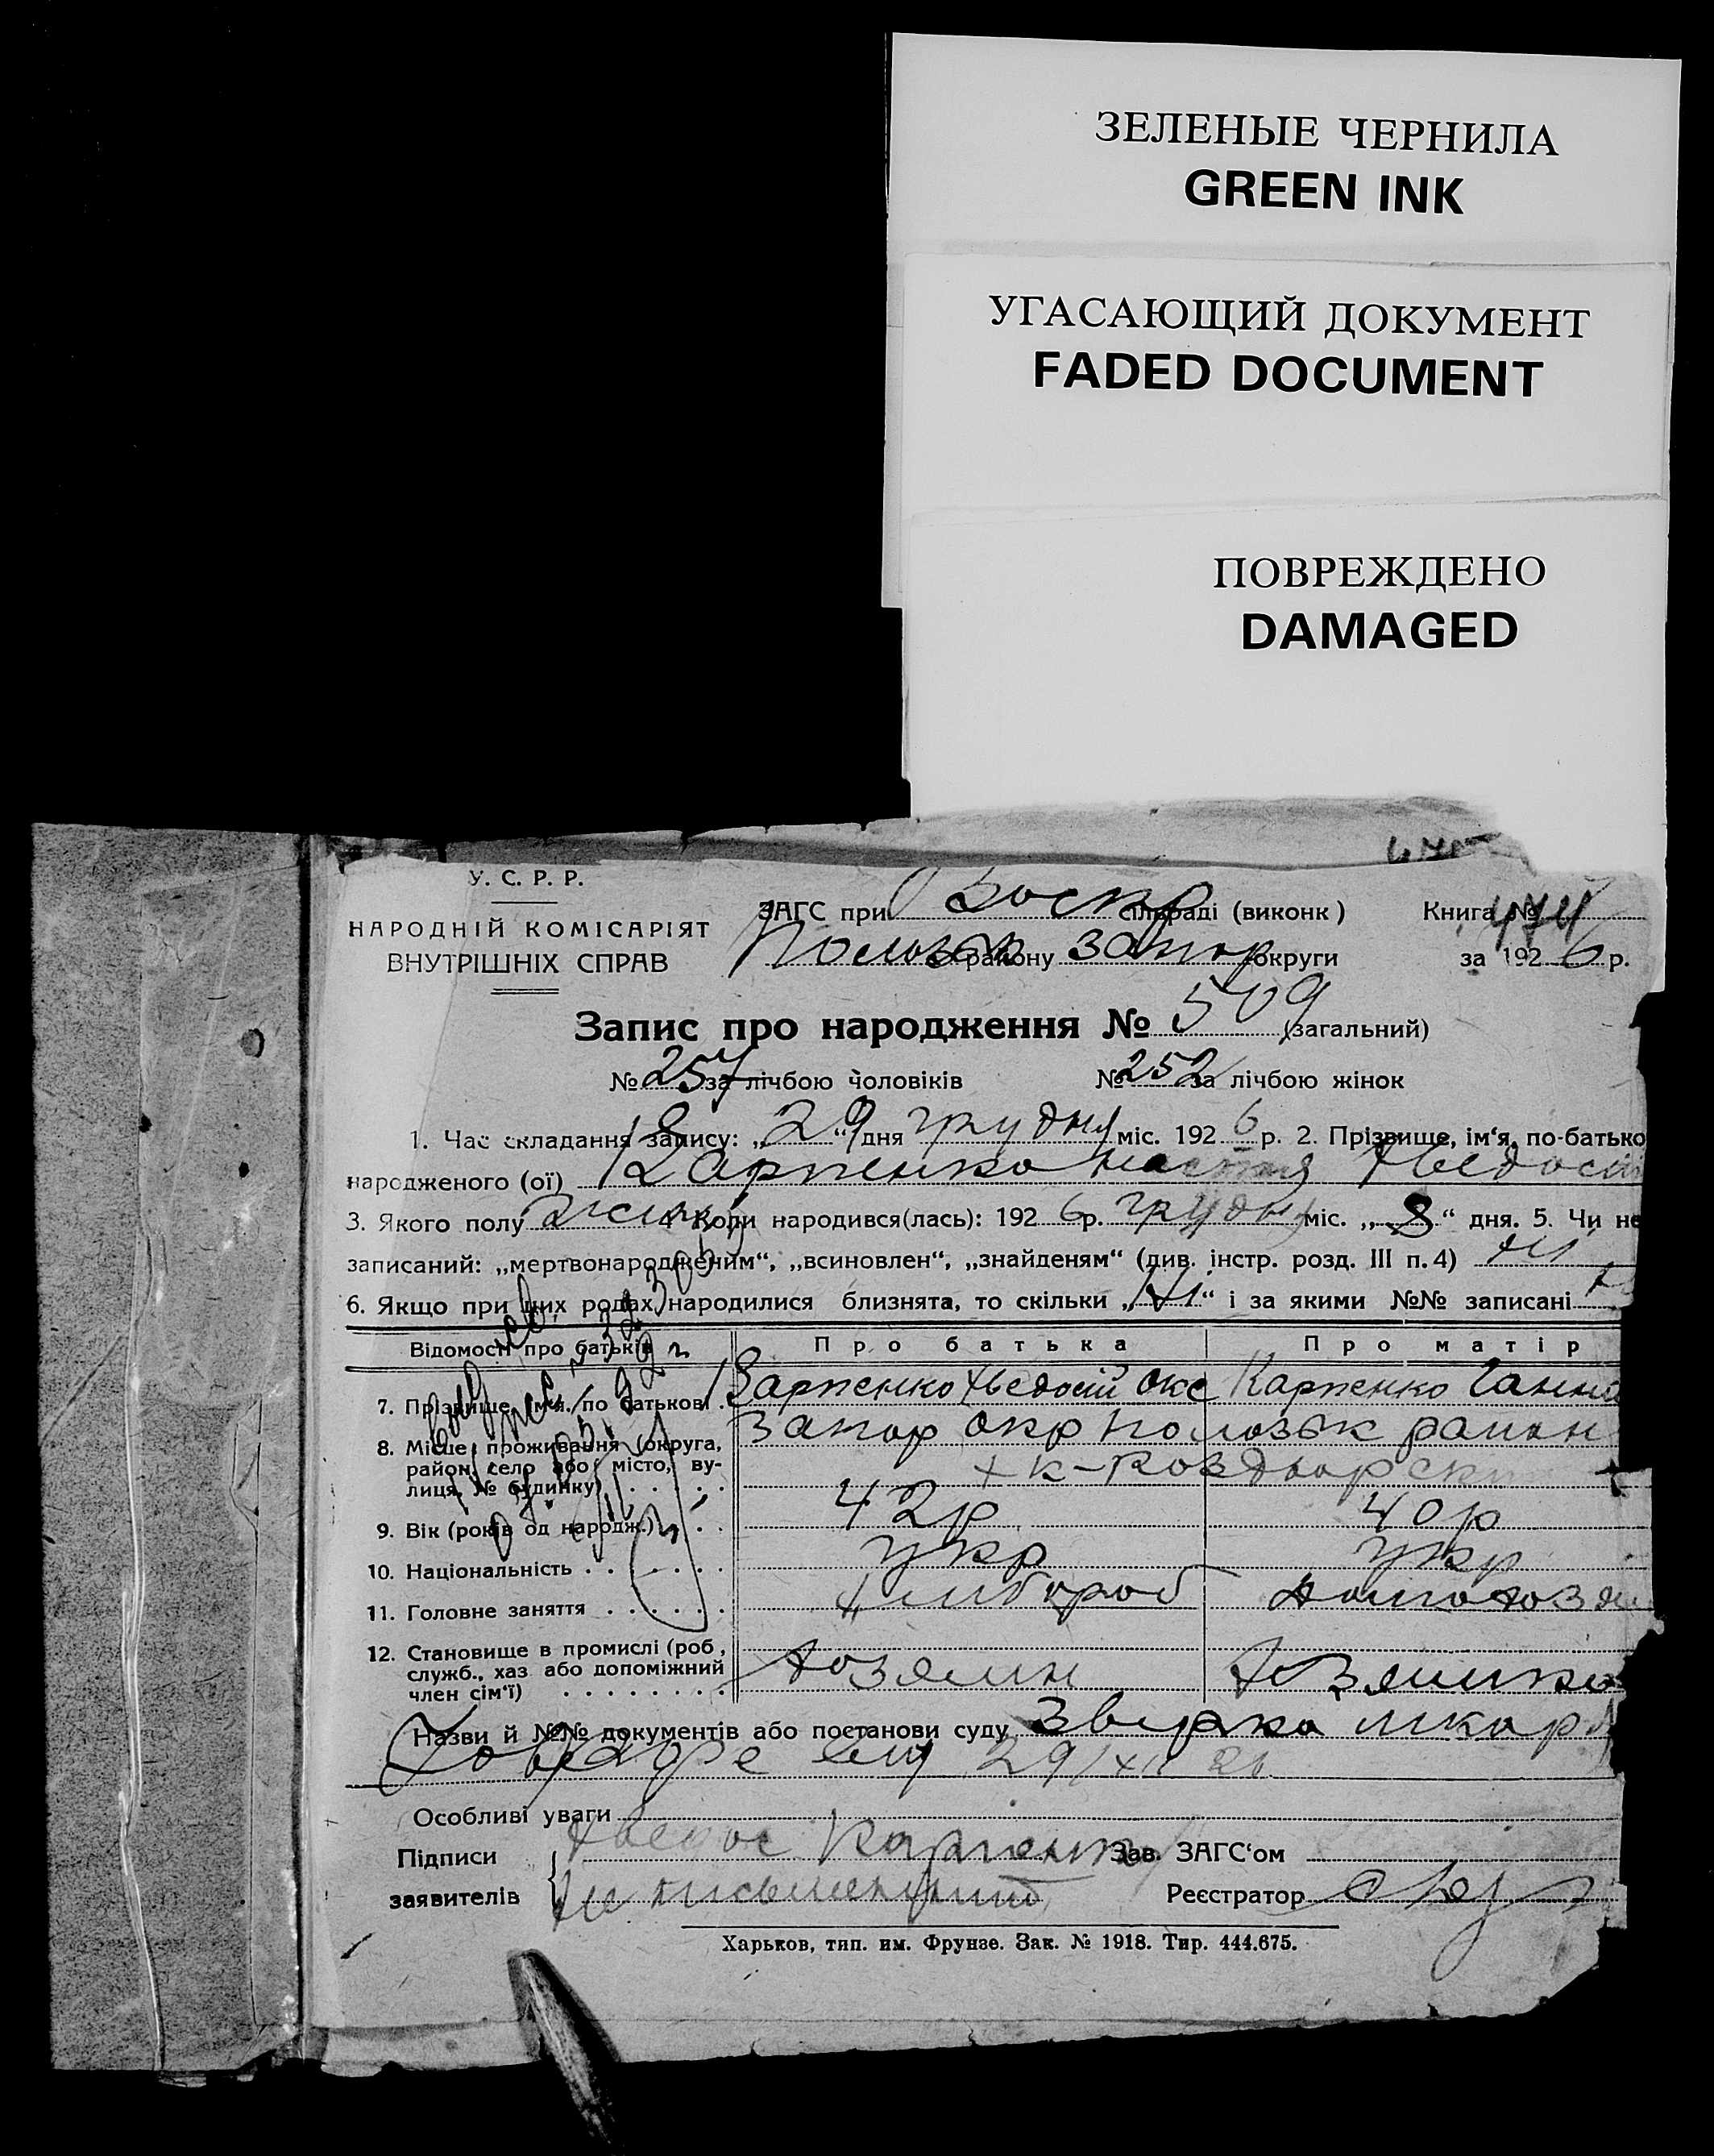 ЗЕЛЕНЫЕ ЧЕРНИЛА
GREEN INK
УГАСАЮЩИЙ ДОКУМЕНТ
FADED DOCUMENT
ПОВРЕЖДЕНО
DAMAGED
У. С. Р. Р.
НАРОДНІЙ КОМІСАРІЯТ
ВНУТРІШНІХ СПРАВ
ЗАГС при Воскр сільраді (виконк) Книга № 474
Полозьк району Запор округи за 1926 р.
Запис про народження № 509 (загальний)
№ 257 за лічбою чоловіків № 252 за лічбою жінок
1. Час складання запису: „29“ дня грудня міс. 1926 р. 2. Прізвище, ім‘я, по-батько
народженого (ої) Карпенко Настя Хведосі
3. Якого полу жін 4. Коли народився(лась): 1926 р. грудня міс. „8“ дня. 5. Чи не
записаний: „мертвонародженим“, „всиновлен“, „знайденям“ (див. інстр. розд. III п. 4) ні
6. Якщо при цих родах народилися близнята, то скільки „Ні“ і за якими №№ записані
Відомості про батьків Про батька Про матір
7. Прізвище, ім‘я, по батькові Карпенко Хведосій Окс Карпенко Ганна
8. Місце проживання (округа, район, село або місто, вулиця, № будинку) Запор окр Полозьк район
9. Вік (років од народж.) 42р 40р
10. Національність укр укр
11. Головне заняття хлібороб домохозяй
12. Становище в промислі (роб., служб., хаз або допоміжний член сім‘ї) хозяин хозяика
Назви й №№ документів або постанови суду Звірка
29/XII 26
Особливі уваги
Підписи Хведос Карпенко Зав. ЗАГС‘ом
заявителів Реєстратор
Харьков, тип. им. Фрунзе. Зак. № 1918. Тир. 444.675.